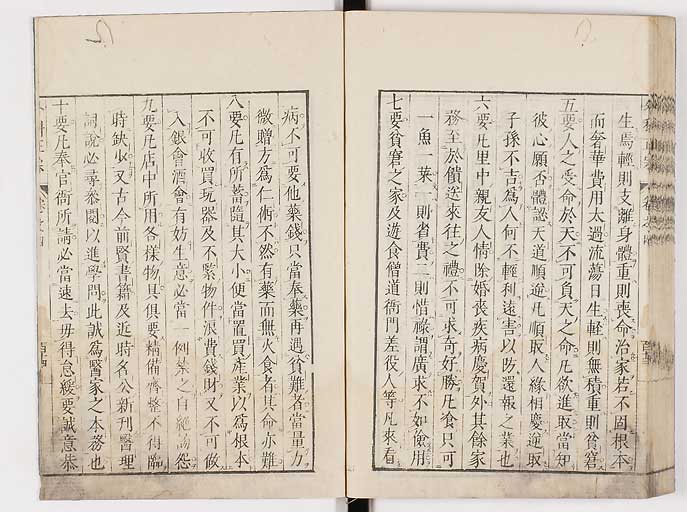 生焉輕則支離身體重則喪命治家若不固根本
而奢華費用太過流蕩日生輕則無積重則貧窘
五要人之受命於天不可負天之命凡欲進取當知
彼心願否體認天道順逆凡順取人緣相慶逆取
子孫不吉爲人何不輕利遠害以防還報之業也
六要凡里中親友人情除婚喪疾病慶賀外其餘家
務至於餽送來往之禮不可求奇好勝凡食只可
一魚一菜一則省費二則惜祿謂廣求不如儉用
七要貧窘之家及遊食僧道衙門差役人等凡來看
病不可要他藥錢只當奉藥再遇貧難者當量力
微贈方爲仁術不然有藥而無火食者其命亦難
八要凡有所蓄隨其大小便當置買產業以爲根本
不可收買玩器及不緊物件浪費錢財又不可做
入銀會酒會有妨生意必當一例禁之自絕謗怨
九要凡店中所用各樣物具俱要精備齊整不得臨
時缺少又古今前賢書籍及近時名公新刊醫理
詞說必尋參閱以進學問此誠爲醫家之本務也
十要凡奉官衙所請必當速去毋得怠緩要誠意恭